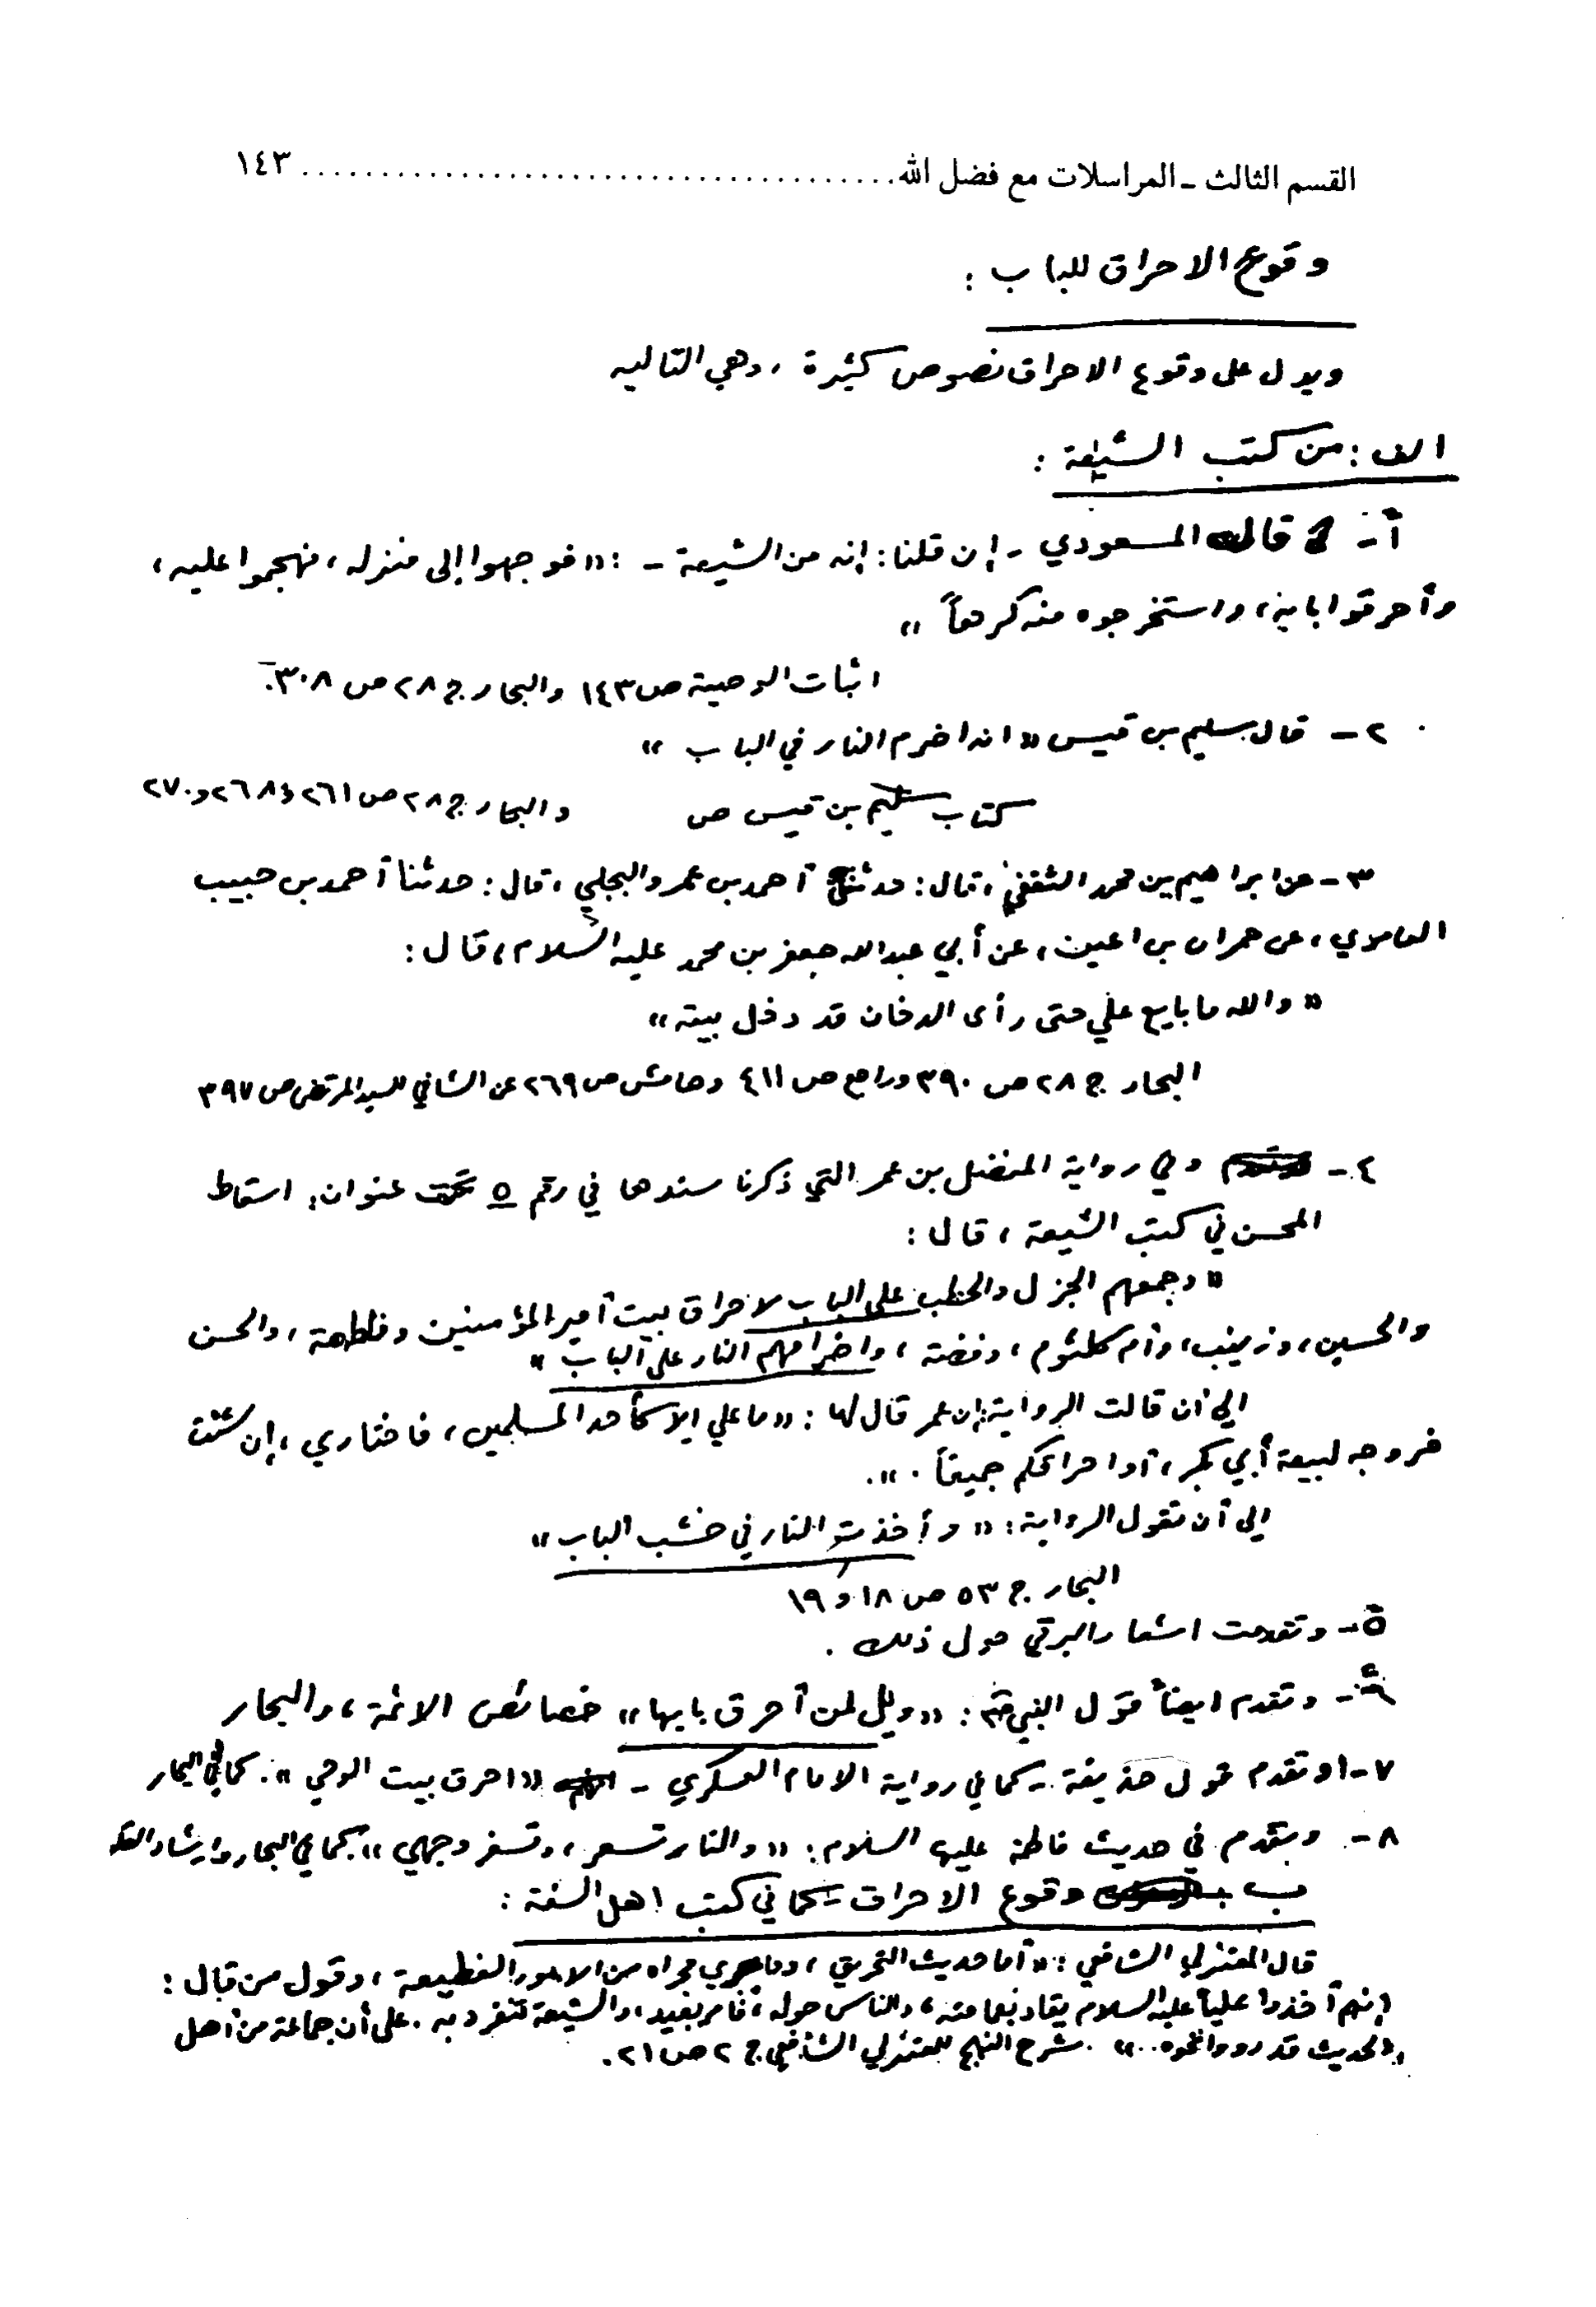 القسم الثالث ـ المراسلات مع فضل الله ........................................ ١٤٣
وقوع الاحراق للباب :
ويدل على وقوع الاحراق نصوص كثيرة ، وهي التاليه
الف : من كتب الشيعة :
أ - قال المسعودي - إن قلنا : إنه من الشيعة - : «فوجهوا إلى منزله ، فهجموا عليه ،
وأحرقوا بابه ، واستخرجوه منه كرهاً »
اثبات الوصية ص ١٤٣ والبحار ج ٢٨ ص ٣٠٨ .
٢ - قال سليم بن قيس « انه اضرم النار في الباب »
كتاب سليم بن قيس ص والبحار ج ٢٨ ص ٢٦١ و ٢٦٨ و ٢٧٠
٣ - عن ابراهيم بن محمد الثقفي ، قال : حدثني أحمد بن عمرو البجلي ، قال : حدثنا أحمد بن حبيب
العامري ، عن حمران بن اعين ، عن أبي عبد الله جعفر بن محمد عليه السلام ، قال :
« والله ما بايع علي حتى رأى الدخان قد دخل بيته »
البحار ج ٢٨ ص ٣٩٠ وراجع ص ٤١١ وهامش ص ٢٦٩ عن الشافي للسيد المرتضى ص ٣٩٧
٤ - وفي رواية المفضل بن عمر التي ذكرنا سندها في رقم ٥ تحت عنوان : اسقاط
المحسن في كتب الشيعة ، قال :
« وجمعهم الجزل والحطب على الباب لاحراق بيت أمير المؤمنين وفاطمة ، والحسن
والحسين ، وزينب ، وأم كلثوم ، وفضة ، واضرامهم النار على الباب »
إلى أن قالت الرواية إن عمر قال لها : «ما علي إلا كأحد المسلمين ، فاختاري ، إن شئت
خروجه لبيعة أبي بكر ، أو احراقكم جميعاً . » .
إلى أن تقول الرواية : « وأخذت النار في خشب الباب »
البحار ج ٥٣ ص ١٨ و ١٩
٥ - وتقدمت اشعار البرقي حول ذلك .
٦ - وتقدم ايضاً قول النبي : «ويل لمن أحرق بابها» خصائص الائمة ، والبحار
٧ - وتقدم قول حذيفة - كما في رواية الامام العسكري - «احرق بيت الوحي » . كما في البحار
٨ - وتقدم في حديث فاطمة عليها السلام : « والنار تسعر ، وتسفر وجهي » كما في البحار وارشاد القلوب
ب وقوع الاحراق - كما في كتب اهل السنة :
قال المعتزلي الشافعي : « أما حديث التحريق ، وما جرى مجراه من الامور الفظيعة ، وقول من قال :
إنهم أخذوا علياً عليه السلام يقاد بعمامته ، والناس حوله ، فأمر بعيد ، والشيعة تنفرد به . على أن جماعة من أهل
الحديث قد رووا نحوه .. » . شرح النهج للمعتزلي الشافعي ج ٢ ص ٢١ .